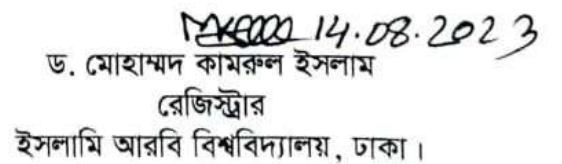 14.08.2023
ড. মোহাম্মদ কামরুল ইসলাম
রেজিস্ট্রার
ইসলামি আরবি বিশ্ববিদ্যালয়, ঢাকা।